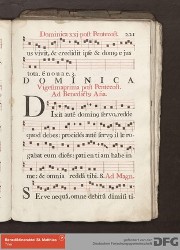 Dominica xxi post Pentecost. 221
us vivit, & credidit ipse & domus e jus
tota. Euouae.
DOMINICA
Vigesimaprima post Pentecost.
Ad Benedictus Aña.
Dixit autē dominus servo, redde
quod debes: procidēs autē servus ille ro
gabat eum dicēs: patientiam habe in
me: & omnia reddā tibi. Ad Magn.
Serve nequā, omne debitū dimisi ti
Benediktinerabtei St. Matthias
Trier
DFG